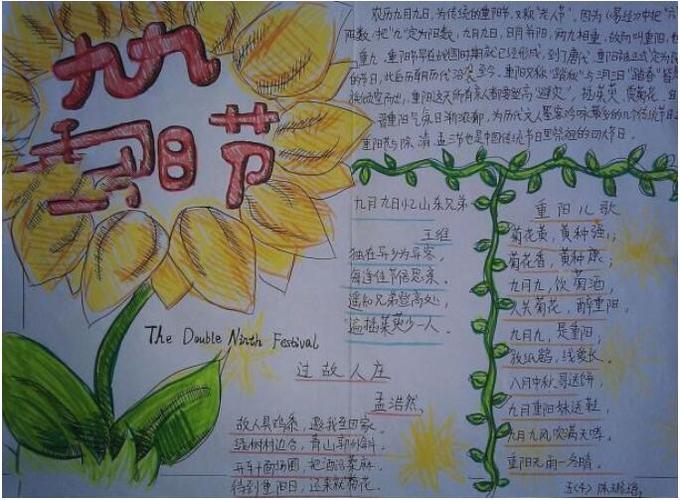 九九
重阳节
农历九月九日，为传统的重阳节，又称"老人节"。因为《易经》中把"六"
阳数，把"九"定为阳数，九月九日，日月并阳，两九相重，故而叫重阳，也
重九。重阳节早在战国时期就已经形成，到了唐代，重阳被正式定为民
的节日，此后历朝历代沿袭至今。重阳又称"踏秋"与"踏春"皆是
重阳这天所有亲人都要登高"避灾"，插茱萸、赏菊花。自
重阳气氛日渐浓郁，为历代文人墨客吟咏最多的几个传统节日之
重阳与除、清、盂三节也是中国传统节日里祭祖的四大节日。
九月九日忆山东兄弟
王维
独在异乡为异客，
每逢佳节倍思亲。
遥知兄弟登高处，
遍插茱萸少一人。
重阳儿歌
菊花黄，黄种强；
菊花香，黄种康；
九月九，饮菊酒，
人共菊花，醉重阳。
九月九，是重阳，
放纸鹞，线爱长。
八月中秋哥送饼，
九月重阳妹送鞋，
九月九风吹满天哗。
重阳无雨一冬晴。
The Double Ninth Festival
过故人庄
孟浩然
故人具鸡黍，邀我至田家。
绿树村边合，青山郭外斜。
开轩面场圃，把酒话桑麻。
待到重阳日，还来就菊花。
五〈4〉陈